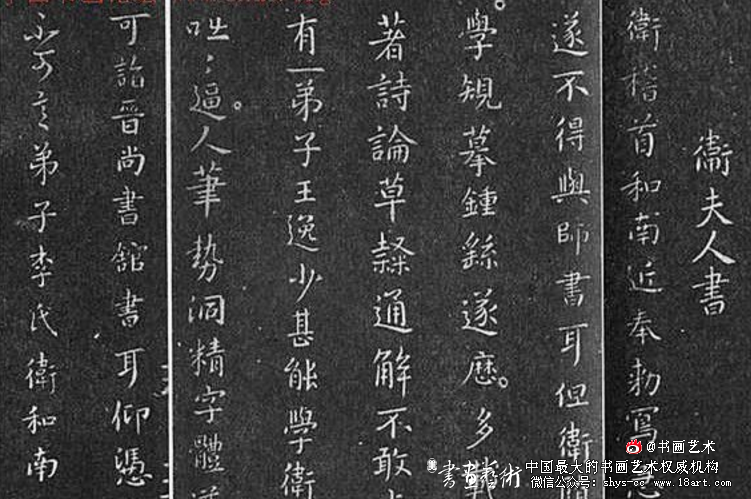 衛夫人書
衛稽首和南近奉勅寫
遂不得與師書耳但衛
學規摹鍾繇遂歷。多載
著詩論草隸通解不敢
有一弟子王逸少甚能學衛
咄〻逼。人筆勢洞精字體
可詣晉尚書舘書耳仰憑
弟子李氏衛和南
@书画艺术
書畫藝術
中国最大的书画艺术权威机构
微信公众号: shys-cc www.18art.com